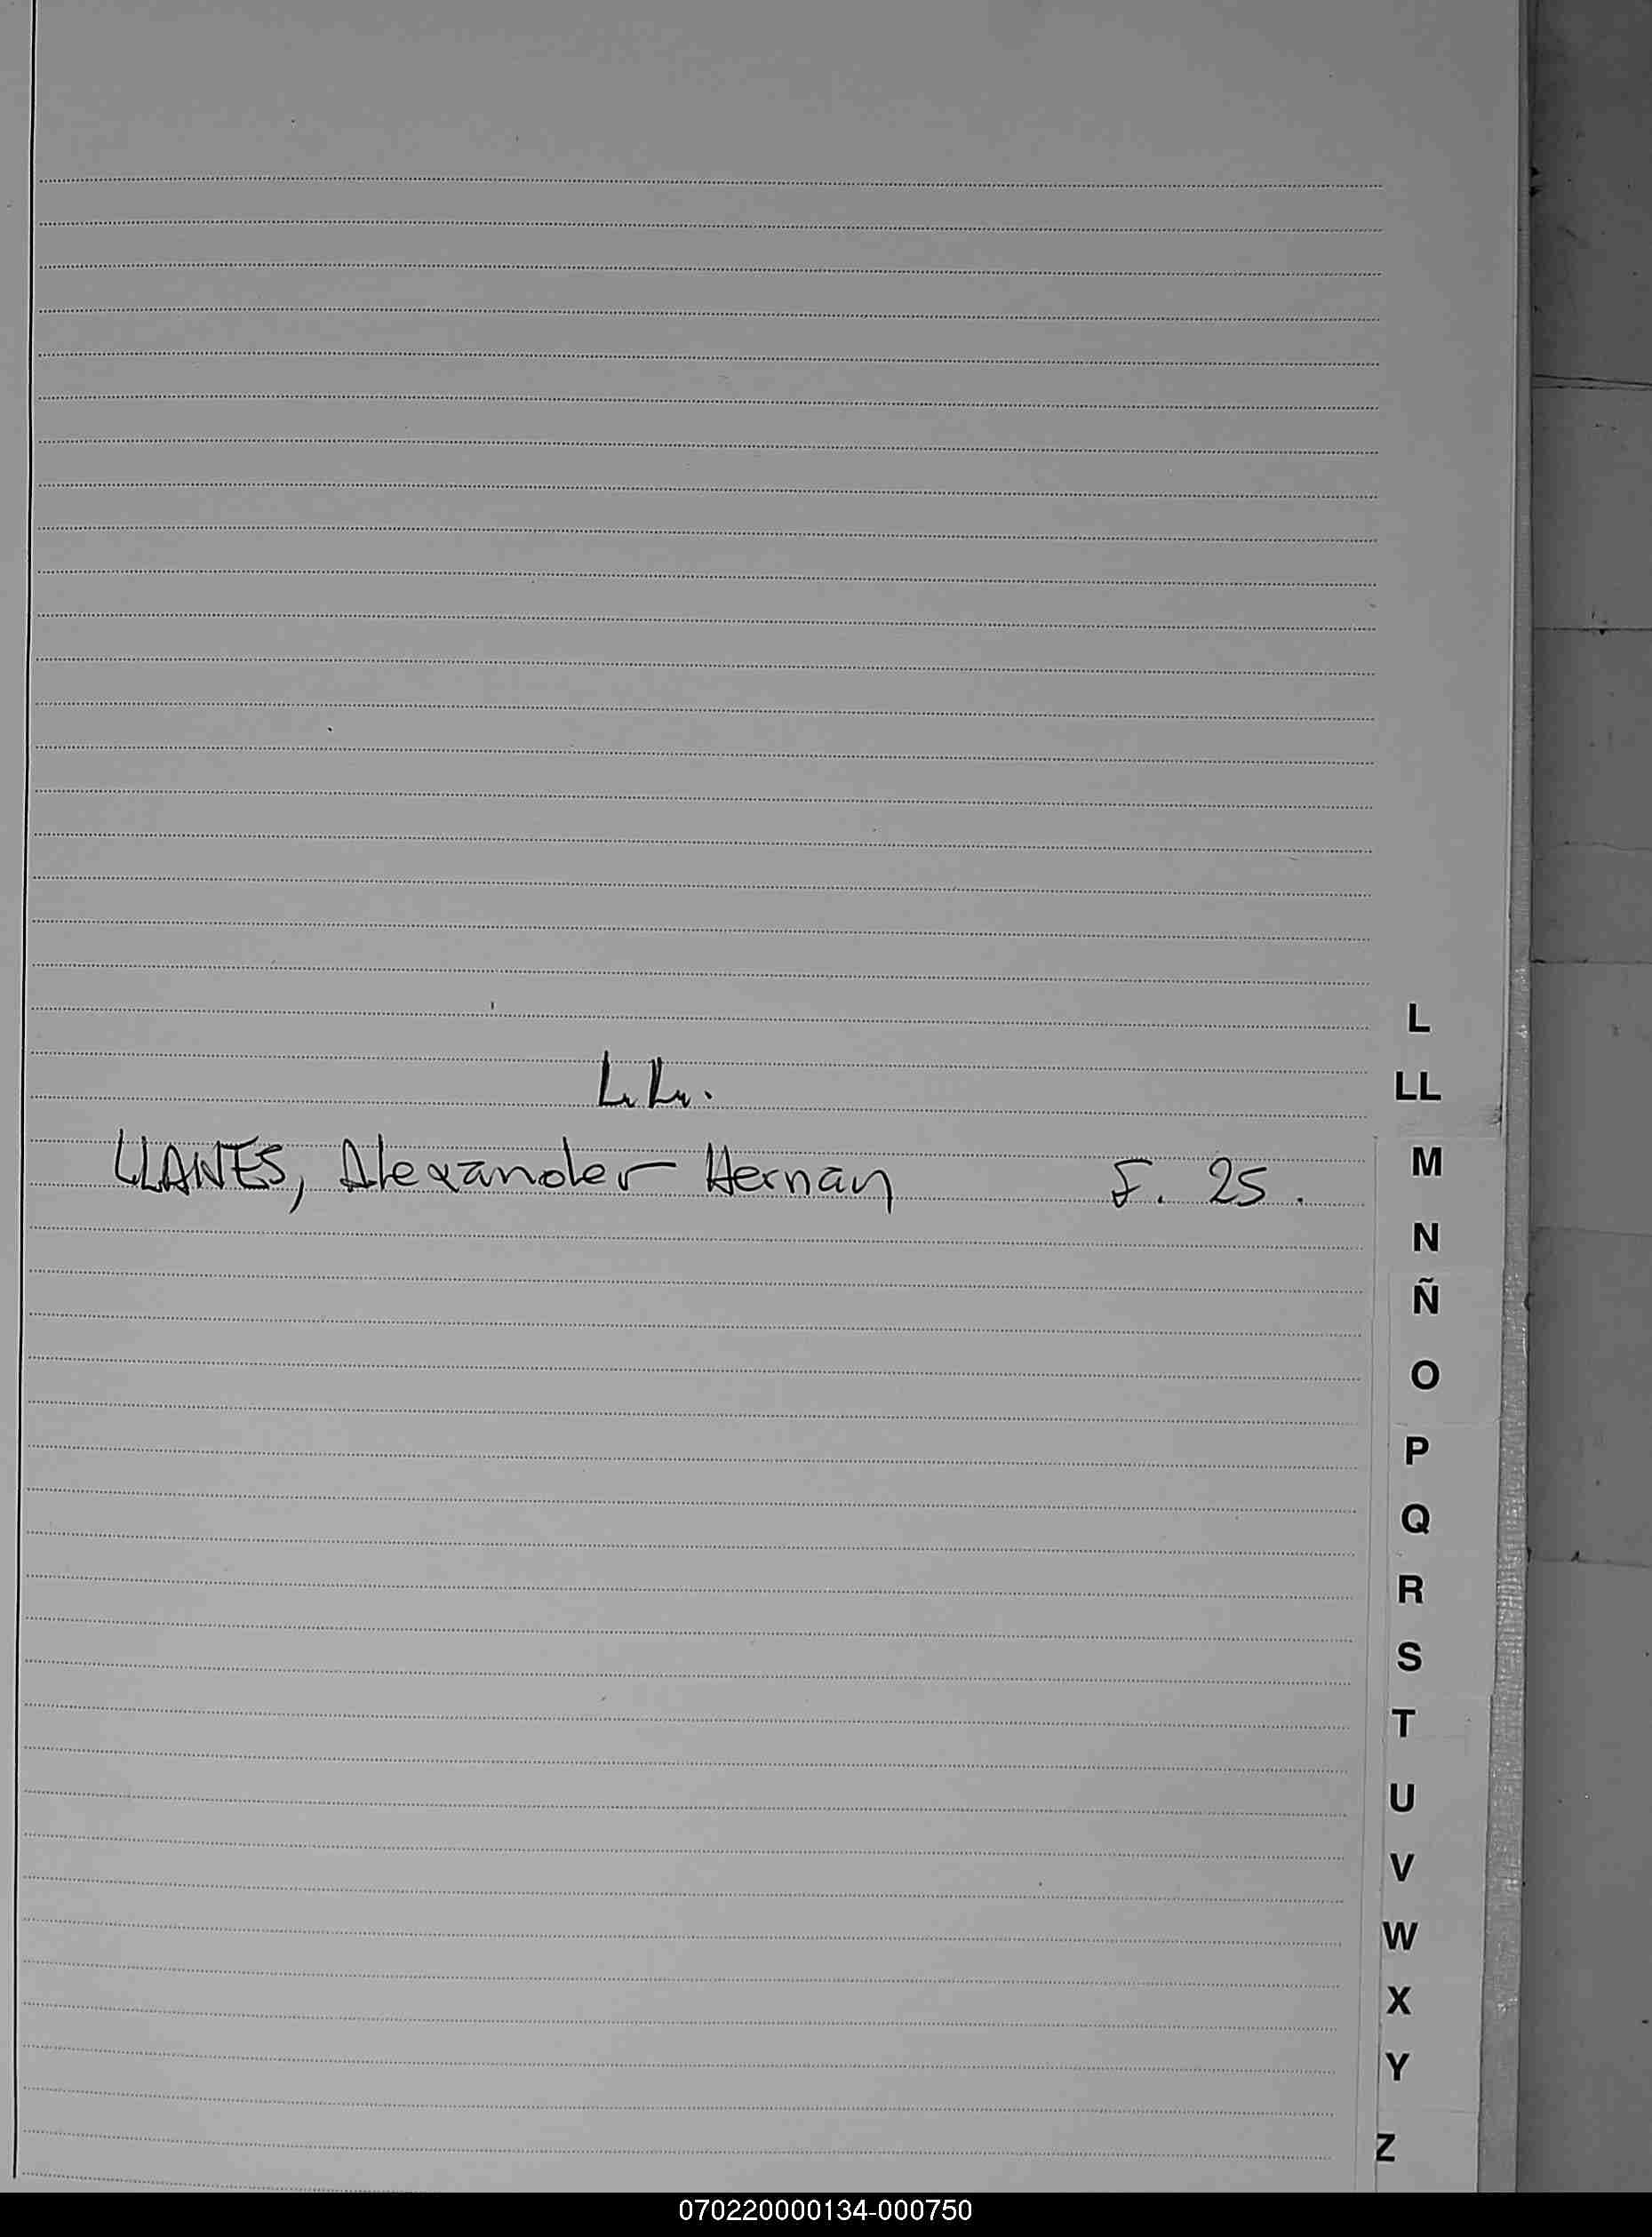 L
LL.
LL
LLANES, Alexander Hernan F. 25.
M
N
Ñ
O
P
Q
R
S
T
U
V
W
X
Y
Z
070220000134-000750